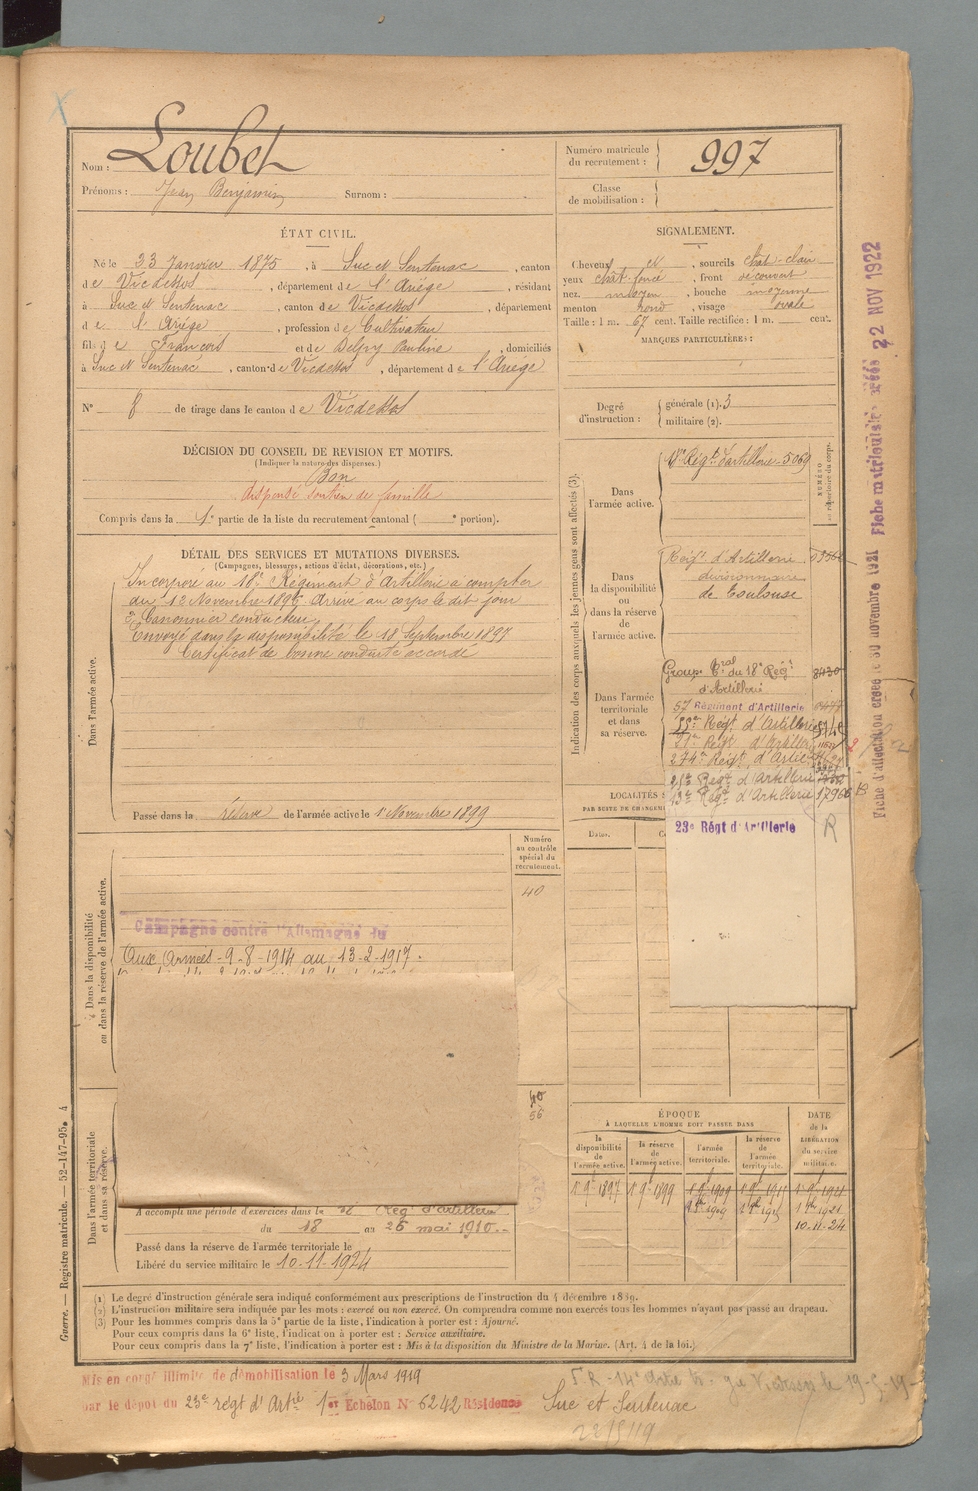 Nom : Loubet
Prénoms : Jean Benjamin Surnom :
Numéro matricule du recrutement : 997
Classe de mobilisation :
ÉTAT CIVIL.
Né le 23 Janvier 1875, à Suc et Sentenac, canton
de Vicdessos, département de l'Ariège, résidant
à Suc et Sentenac, canton de Vicdessos, département
de l'Ariège, profession de Cultivateur
fils de François et de Delpy Pauline, domiciliés
à Suc et Sentenac, canton de Vicdessos, département de l'Ariège
N° 8 de tirage dans le canton de Vicdessos
SIGNALEMENT.
Cheveux et, sourcils chât-clair
yeux chât-foncé, front découvert
nez moyen, bouche moyenne
menton rond, visage ovale
Taille : 1 m. 67 cent. Taille rectifiée : 1 m. cent.
MARQUES PARTICULIÈRES :
Degré d'instruction : générale (1). 3
militaire (2).
DÉCISION DU CONSEIL DE REVISION ET MOTIFS.
(Indiquer la nature des dispenses.)
Bon
dispensé soutien de famille
Compris dans la 1re partie de la liste du recrutement cantonal ( e portion).
DÉTAIL DES SERVICES ET MUTATIONS DIVERSES.
(Campagnes, blessures, actions d'éclat, décorations, etc.)
Dans l'armée active.
Incorporé au 18e Régiment d'Artillerie à compter
du 12 Novembre 1896. Arrivé au corps le dit jour
2e Canonnier conducteur
Envoyé dans la disponibilité le 18 Septembre 1897
Certificat de bonne conduite accordé
Passé dans la réserve de l'armée active le 1er Novembre 1899
Indication des corps auxquels les jeunes gens sont affectés (3).
NUMÉRO au répertoire du corps.
Dans l'armée active.
18e Régt d'artillerie 5069
Dans la disponibilité ou dans la réserve de l'armée active.
Régt d'Artillerie
divisionnaire
de Toulouse
Dans l'armée territoriale et dans sa réserve.
Groupe tral du 18e Régt 8430
d'Artillerie
57 Régiment d'Artillerie
Régt d'Artillerie
21e Régt d'Artillerie
274e Régt d'Artie
21e Régt d'Artillerie
13e Régt d'Artillerie 17966
23e Régt d'Artillerie
R
LOCALITÉS
PAR SUITE DE CHANGEM
Dates.
Numéro au contrôle spécial du recrutement.
40
Dans la disponibilité ou dans la réserve de l'armée active.
Campagne contre l'Allemagne du
Aux Armées - 9-8-1914 au 13-2-1917.
40
56
Dans l'armée territoriale et dans sa réserve.
A accompli une période d'exercices dans le Régt d'artillerie
du 18 au 26 mai 1910
Passé dans la réserve de l'armée territoriale le
Libéré du service militaire le 10-11-1924
ÉPOQUE
À LAQUELLE L'HOMME DOIT PASSER DANS
la disponibilité de l'armée active.
la réserve de l'armée active.
l'armée territoriale.
la réserve de l'armée territoriale.
DATE de la LIBÉRATION du service militaire.
1 9bre 1897 1 9bre 1899 1 9bre 1909 1 9bre 1915 1 9bre 1921
10-11-24
(1) Le degré d'instruction générale sera indiqué conformément aux prescriptions de l'instruction du 4 décembre 1889.
(2) L'instruction militaire sera indiquée par les mots : exercé ou non exercé. On comprendra comme non exercés tous les hommes n'ayant pas passé au drapeau.
(3) Pour les hommes compris dans la 5e partie de la liste, l'indication à porter est : Ajourné.
Pour ceux compris dans la 6e liste, l'indication à porter est : Service auxiliaire.
Pour ceux compris dans la 7e liste, l'indication à porter est : Mis à la disposition du Ministre de la Marine. (Art. 4 de la loi.)
Mis en congé illimité de démobilisation le 3 Mars 1919
par le dépôt du 23e régt d'Artrie 1er Echelon N° 6242 Résidence
Suc et Sentenac
Guerre. — Registre matricule. — 52-147-95. 4
Fiche d'affectation créée le 30 novembre 1921
Fiche matriculaire créée 22 NOV 1922